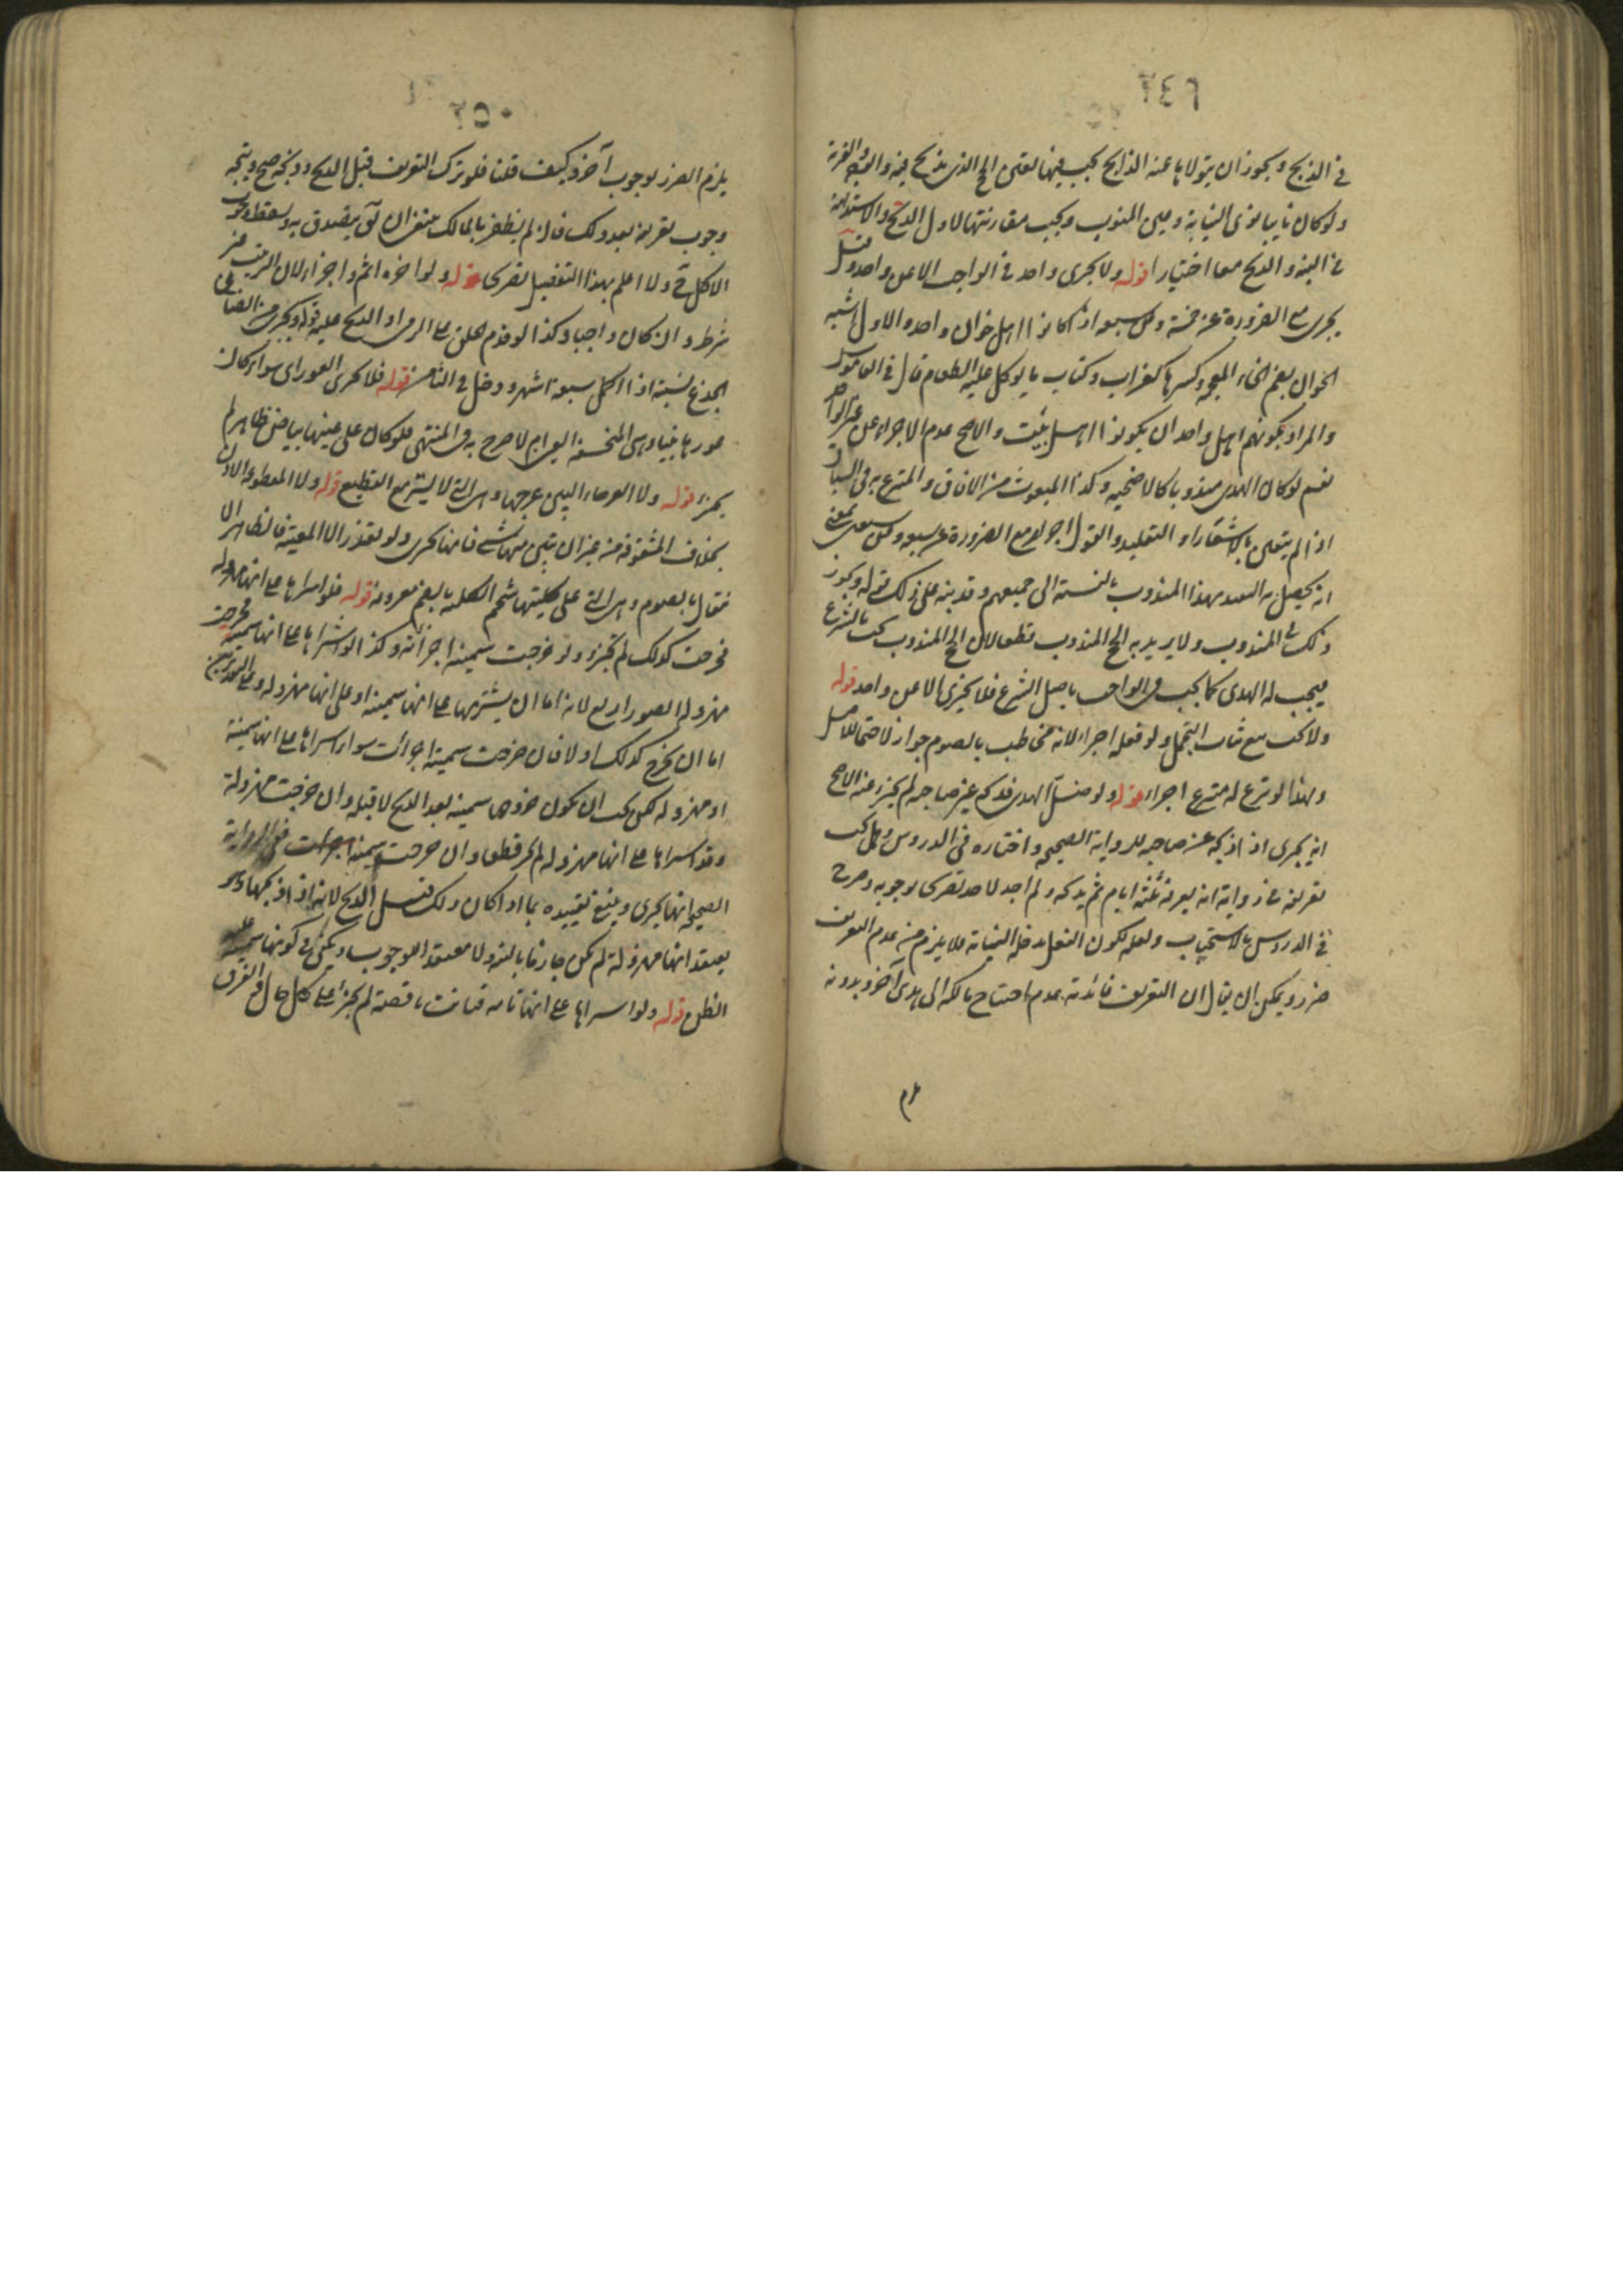 في الذبح ويجوز ان يتولاها عنه الذابح يجب فيها تعيين الحج الذي يذبح فيه والوجه والقربة
ولو كان نايبا نوى النيابة وعين المنوب ويجب مقارنتها لاول الذبح والاستدامة
في النية والذبح معا اختيارا قوله ولا يجزى واحد في الواجب الا عن واحد وقيل
يجزى مع الضرورة عن خمسة وعن سبعة اذا كانوا اهل خوان واحد والاول اشبه
الخوان بضم الخاء المعجمة وكسرها كغراب وكتاب ما يوكل عليه الطعام قال في القاموس
والمراد بكونهم اهل خوان واحد ان يكونوا اهل بيت والاصح عدم الاجزاء عن غير الواحد
نعم لو كان الهدى مندوبا كالاضحيه وكذا المبعوث من الافاق والمتبرع به في السياق
اذا لم يتعين بالاشعار او التقليد والقول اجزاء مع الضرورة عن سبعة وعن سبعين بمعنى
انه يحصل به التعبد بهذا المندوب بالنسبة الى جميعهم وقد نبه على ذلك بقوله ويجوز
ذلك في المندوب ولا يريد به الحج المندوب قطعا لان الحج المندوب يجب بالشروع
فيجب له الهدى كما يجب في الواجب باصل الشرع فلا يجزى الا عن واحد قوله
ولا يجب بيع ثياب التجمل ولو فعله اجزاء لانه مخاطب بالصوم جواز لاحتمال
ولهذا لو تبرع له متبرع اجزاء قوله ولو ضل الهدى فذبحه غير صاحبه لم يجز عنه الاصح
انه يجزى اذا ذبحه عن صاحبه للرواية الصحيحه واختاره في الدروس وهل يجب
تعريفه في رواية انه يعرفه ثلثة ايام ثم يذبحه ولم اجد لاحد تصريحا بوجوبه وصرح
في الدروس بالاستحباب ولعله لكون الفعل يدخله النيابة فلا يلزم من عدم التعريف
ضرر ويمكن ان يقال ان التعريف فائدته عدم احتياج مالكه الى هدى آخر وبدونه
يلزم
٢٥٠
يلزم الضرر بوجوب آخر وكيف قلنا فلو ترك التعريف قبل الذبح وذبحه صح ويتجه
وجوب تعريفه بعد ذلك فان لم يظفر بالمالك تصدق به وسقط وجوب
الاكل ولا اعلم بهذا التفصيل تصريحا قوله ولو اخره اثم واجزاء لان الترتيب غير
شرط وان كان واجبا وكذا لو قدم الحلق على الرمى او الذبح عليه قوله ويجزى من الضان
الجذع لسنته اذا اكمل سبعة اشهر ودخل في الثامن قوله فلا يجزى العوراء سواء كان
عورها بينا وهى المنخسفة العين ام لا صرح به في المنتهى فلو كان على عينها بياض ظاهر لم
يجزء قوله ولا العرجاء البين عرجها وهى التى لا يسير مع القطيع قوله ولا المقطوعة الاذن
بخلاف المشقوقة من غير ان يبقى منها شىء فانها تجزى ولو تعذر الا المعيبة فالظاهر الا
نتقال بالصوم وهى التى على كليتها شحم الكلية بالضم معروفة قوله فلو اشتراها على انها مهزولة
فخرجت كذلك لم يجزء ولو خرجت سمينة اجزأته وكذا لو اشتراها على انها سمينة فخرجت
مهزولة الصور اربع لانه اما ان يشتريها على انها سمينة او على انها مهزولة وعلى التقديرين
اما ان يخرج كذلك او لا فان خرجت سمينة اجزأت سواء اشتراها على انها سمينة
او مهزولة لكن يجب ان يكون ظهورها سمينة بعد الذبح لا قبله وان خرجت مهزولة
وقد اشتراها على انها مهزولة لم يجز قطعا وان خرجت سمينة اجزأت ففى الرواية
الصحيحة انها تجزى وينبغى تقييده بما اذا كان ذلك قبل الذبح لانه اذا ذبحها وهو
يعتقد انها مهزولة لم يكن جازما بالنية ولا معتقدا للوجوب ويكفى في كونها سمينة غلبة
الظن قوله ولو اشتراها على انها تامه فبانت ناقصة لم يجزء على كل حال والفرق